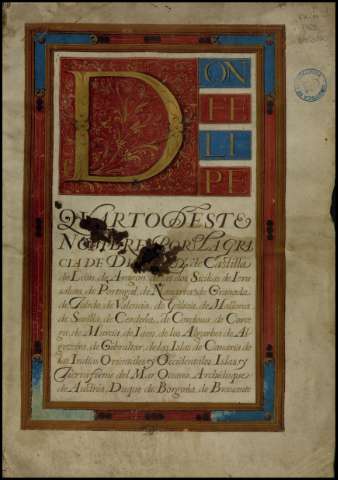 DON
FE
LI
PE
QVARTO DESTE
NOMBRE POR LA GRA
CIA DE de Castilla
de Leon, de Aragon, dos Sicilias de Ieru
salem, de Portugal, de Nauarra, de Granada,
de Toledo, de Valencia, de Galicia, de Mallorca
de Seuilla, de Cerdeña, de Cordoua, de Corce
ga, de Murcia, de Iaen, de los Algarbes de Al
gezira, de Gibraltar, de las Islas de Canaria de
las Indias Orientales y Occidentales Islas, y
Tierra firme del Mar Oceano, Archiduque
de Austria, Duque de Borgoña, de Brauante